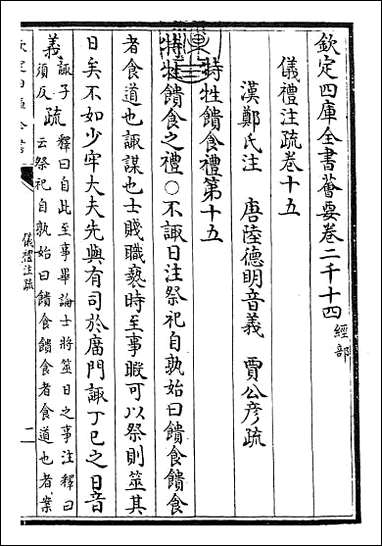 欽定四庫全書薈要卷二千十四 經部
儀禮注疏卷十五
漢鄭氏注 唐陸德明音義 賈公彥疏
特牲饋食禮第十五
特牲饋食之禮○不諏日注祭祀自孰始曰饋食饋食
者食道也諏謀也士賤職褻時至事暇可以祭則筮其
日矣不如少牢大夫先與有司於庿門諏丁巳之日音
義諏子須反疏釋曰自此至事畢論士將筮日之事注釋曰
云祭祀自孰始曰饋食饋食者食道也者案
欽定四庫全書
儀禮注疏